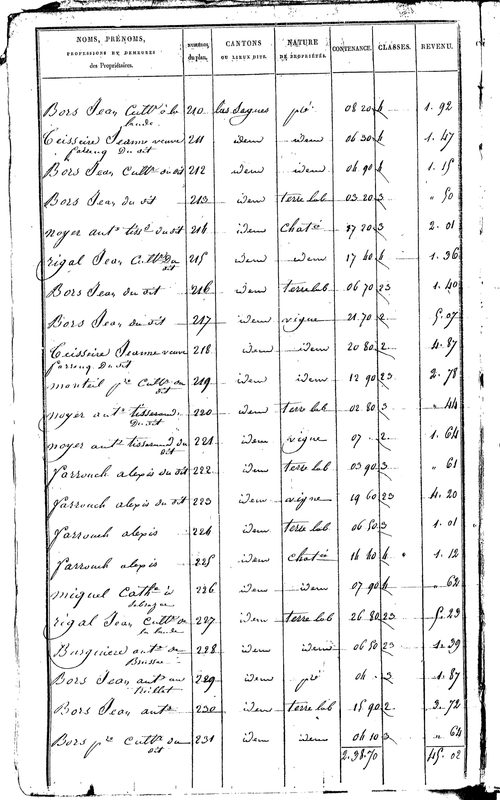 NOMS, PRÉNOMS, PROFESSIONS ET DEMEURES des Propriétaires. | NUMÉROS du plan. | CANTONS OU LIEUX DITS. | NATURE DE PROPRIÉTÉS. | CONTENANCE. | CLASSES. | REVENU.
Bors Jean Cultr à la lande 210 las Sagnes pré 08 20 4 1. 92
Teisseire Jeanne veuve Farreng Du dit 211 idem idem 06 30 4 1. 47
Bors Jean Cultr du dit 212 idem idem 04 90 4 1. 15
Bors Jean du dit 213 idem terre lab 03 20 3 " 50
noyer ante tissd du dit 214 idem chatie 37 20 3 2. 01
rigal Jean Cultr Du dit 215 idem idem 17 40 4 1. 36
Bors Jean du dit 216 idem terre lab 06 70 23 1. 40
Bors Jean du dit 217 idem vigne 21 70 2 5. 07
Teisseire Jeanne veuve Farreng Du dit 218 idem idem 20 80 2 4. 87
monteil pre Cultr du dit 219 idem idem 12 90 23 2. 78
noyer ante tisserand Du dit 220 idem terre lab 02 80 3 " 44
noyer ante tisserand du dit 221 idem vigne 07 2 1. 64
farrouch alexis du dit 222 idem terre lab 03 90 3 " 61
farrouch alexis du dit 223 idem vigne 19 60 23 4. 20
farrouch alexis 224 idem terre lab 06 50 3 1. 01
farrouch alexis 225 idem chatie 14 40 4 1. 12
miquel Cathe à 226 idem idem 07 90 4 " 62
rigal Jean Cultr de la lande 227 idem terre lab 26 80 23 5. 23
Busquiere ante de 228 idem idem 06 50 23 1. 39
Bors Jean ant au 229 idem pré 04 3 1. 87
Bors Jean ante 230 idem terre lab 15 90 2 3. 72
Bors pre Cultr du dit 231 idem idem 04 10 3 " 64
2. 38. 70 45. 02